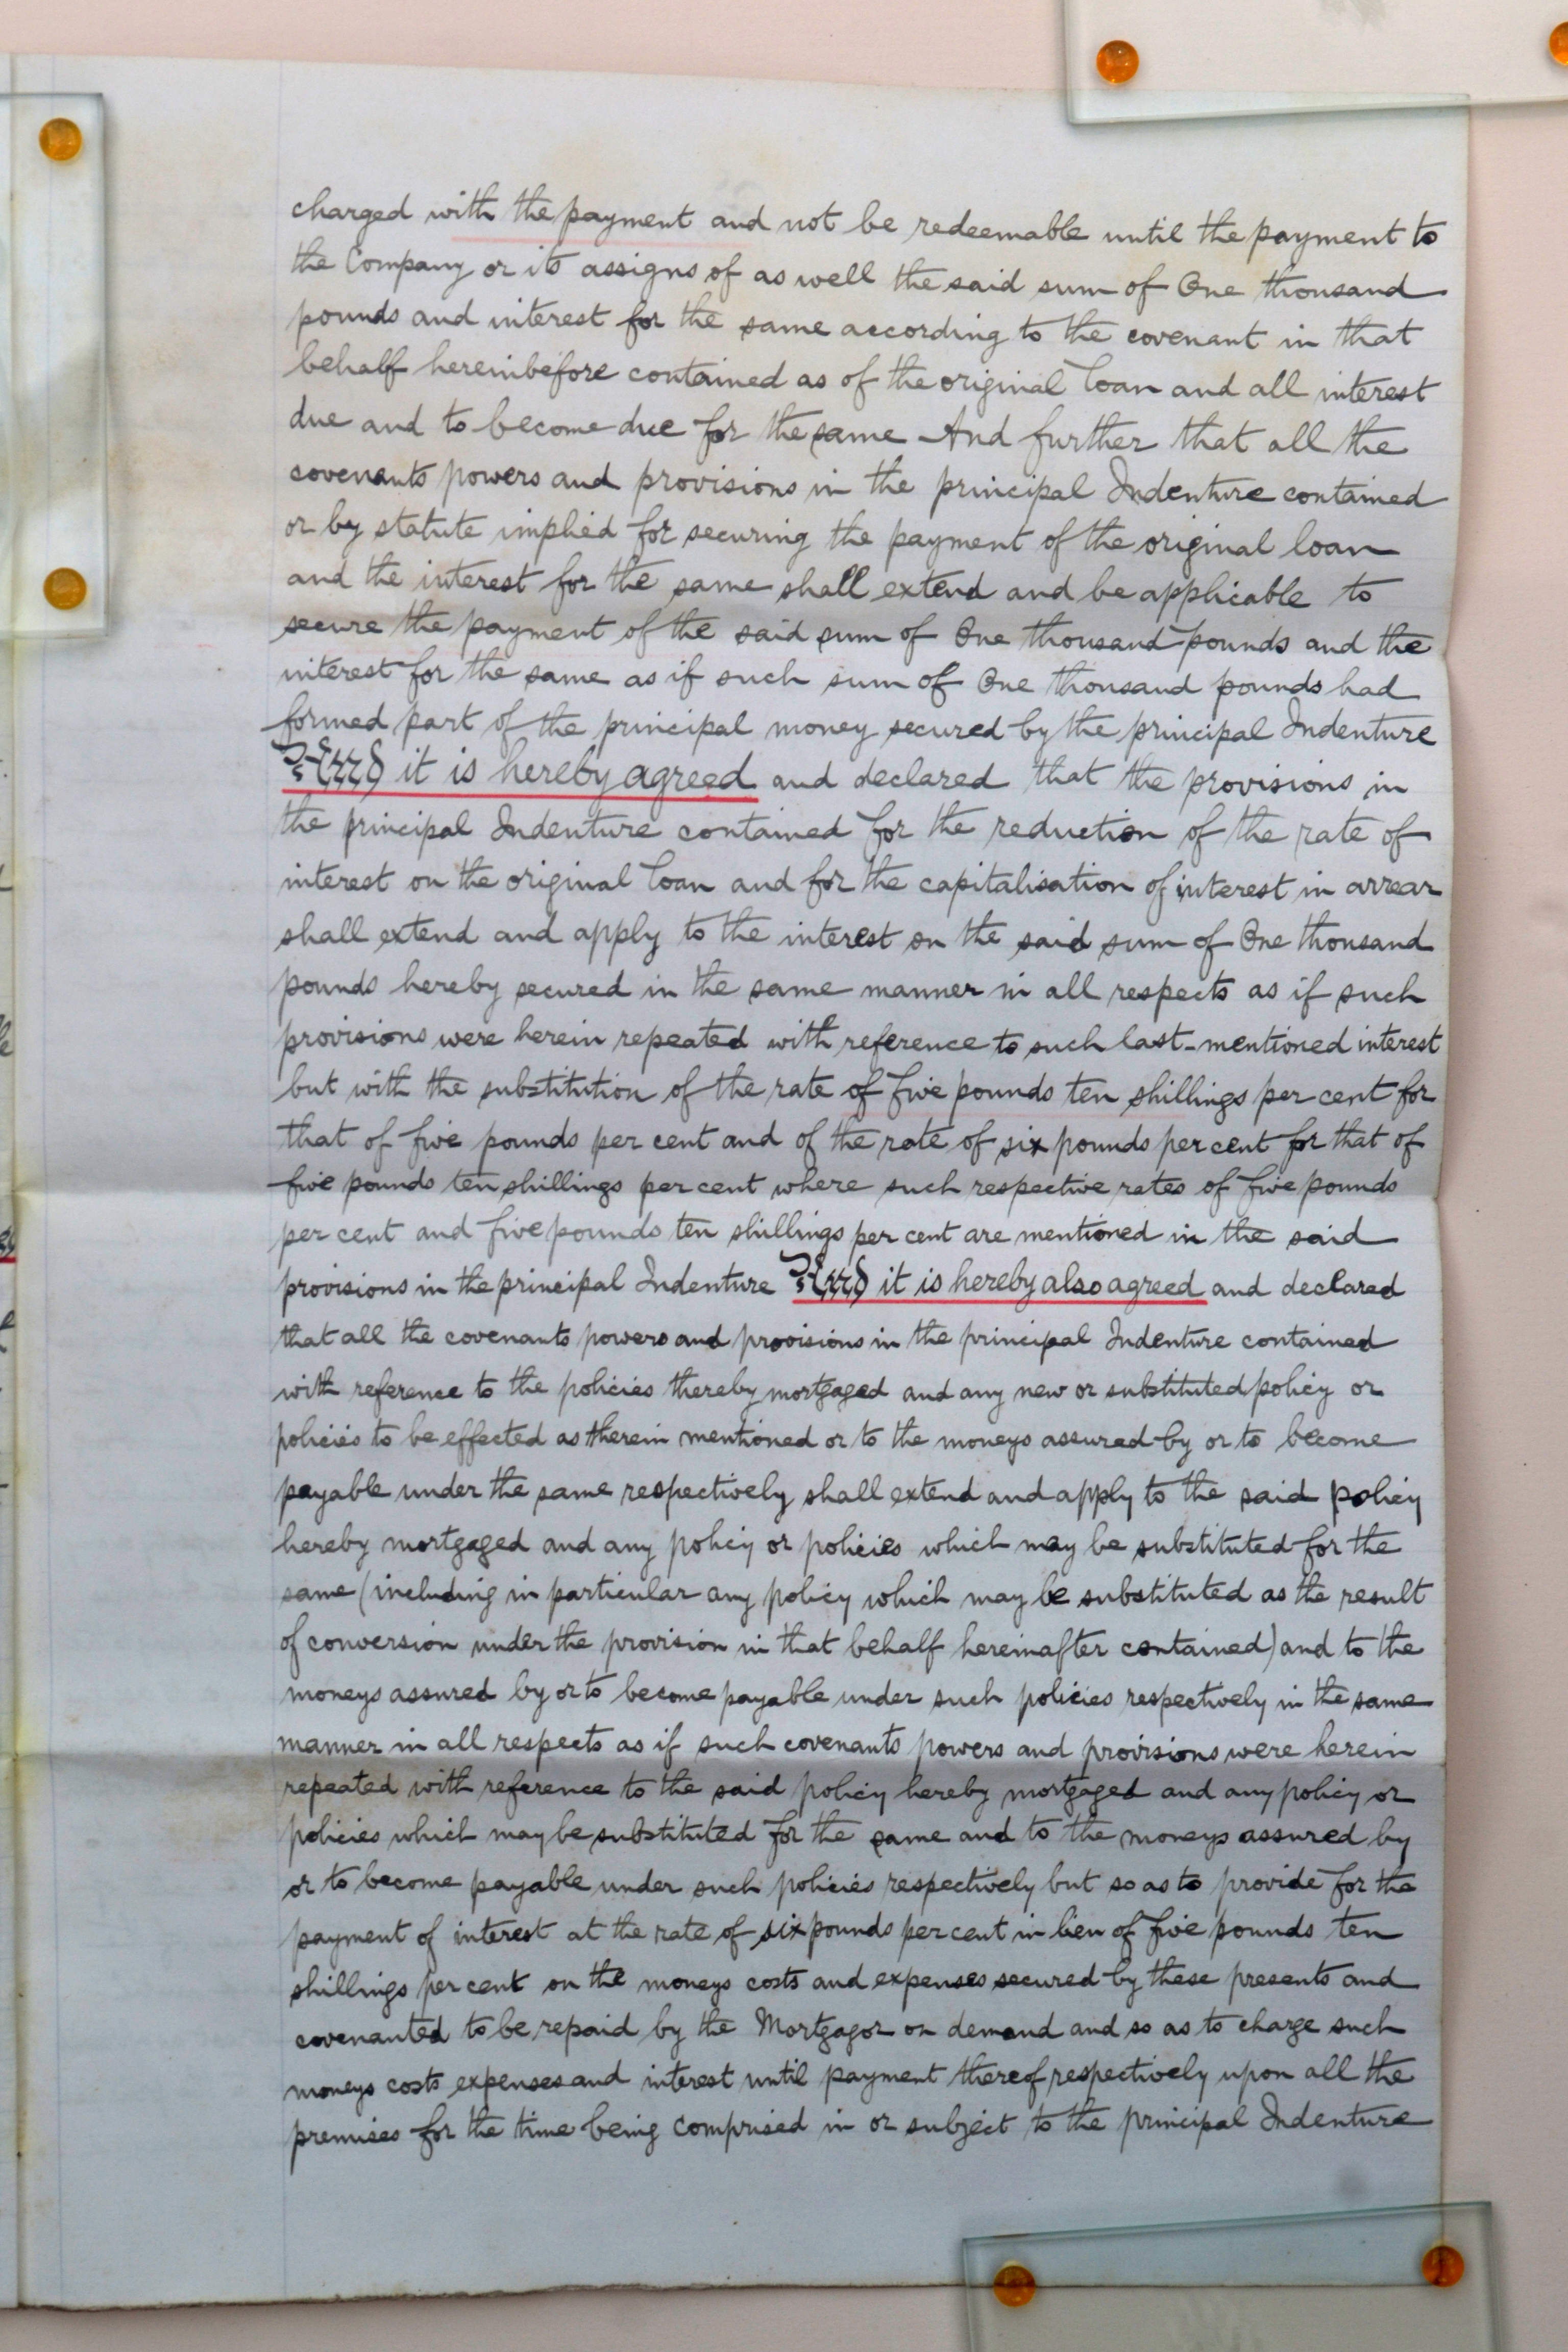 charged with the payment and not be redeemable until the payment to
the Company or its assigns of as well the said sum of One thousand
pounds and interest for the same according to the covenant in that
behalf hereinbefore contained as of the original loan and all interest
due and to become due for the same And further that all the
covenants powers and provisions in the principal Indenture contained
or by statute implied for securing the payment of the original loan
and the interest for the same shall extend and be applicable to
secure the payment of the said sum of One thousand pounds and the
interest for the same as if such sum of One thousand pounds had
formed part of the principal money secured by the principal Indenture
And it is hereby agreed and declared that the provisions in
the principal Indenture contained for the reduction of the rate of
interest on the original loan and for the capitalisation of interest in arrear
shall extend and apply to the interest on the said sum of One thousand
pounds hereby secured in the same manner in all respects as if such
provisions were herein repeated with reference to such last-mentioned interest
but with the substitution of the rate of five pounds ten shillings per cent for
that of five pounds per cent and of the rate of six pounds per cent for that of
five pounds ten shillings per cent where such respective rates of five pounds
per cent and five pounds ten shillings per cent are mentioned in the said
provisions in the principal Indenture And it is hereby also agreed and declared
that all the covenants powers and provisions in the principal Indenture contained
with reference to the policies thereby mortgaged and any new or substituted policy or
policies to be effected as therein mentioned or to the moneys assured by or to become
payable under the same respectively shall extend and apply to the said policy
hereby mortgaged and any policy or policies which may be substituted for the
same (including in particular any policy which may be substituted as the result
of conversion under the provision in that behalf hereinafter contained) and to the
moneys assured by or to become payable under such policies respectively in the same
manner in all respects as if such covenants powers and provisions were herein
repeated with reference to the said policy hereby mortgaged and any policy or
policies which may be substituted for the same and to the moneys assured by
or to become payable under such policies respectively but so as to provide for the
payment of interest at the rate of six pounds per cent in lieu of five pounds ten
shillings per cent on the moneys costs and expenses secured by these presents and
covenanted to be repaid by the Mortgagor on demand and so as to charge such
moneys costs expenses and interest until payment thereof respectively upon all the
premises for the time being comprised in or subject to the principal Indenture